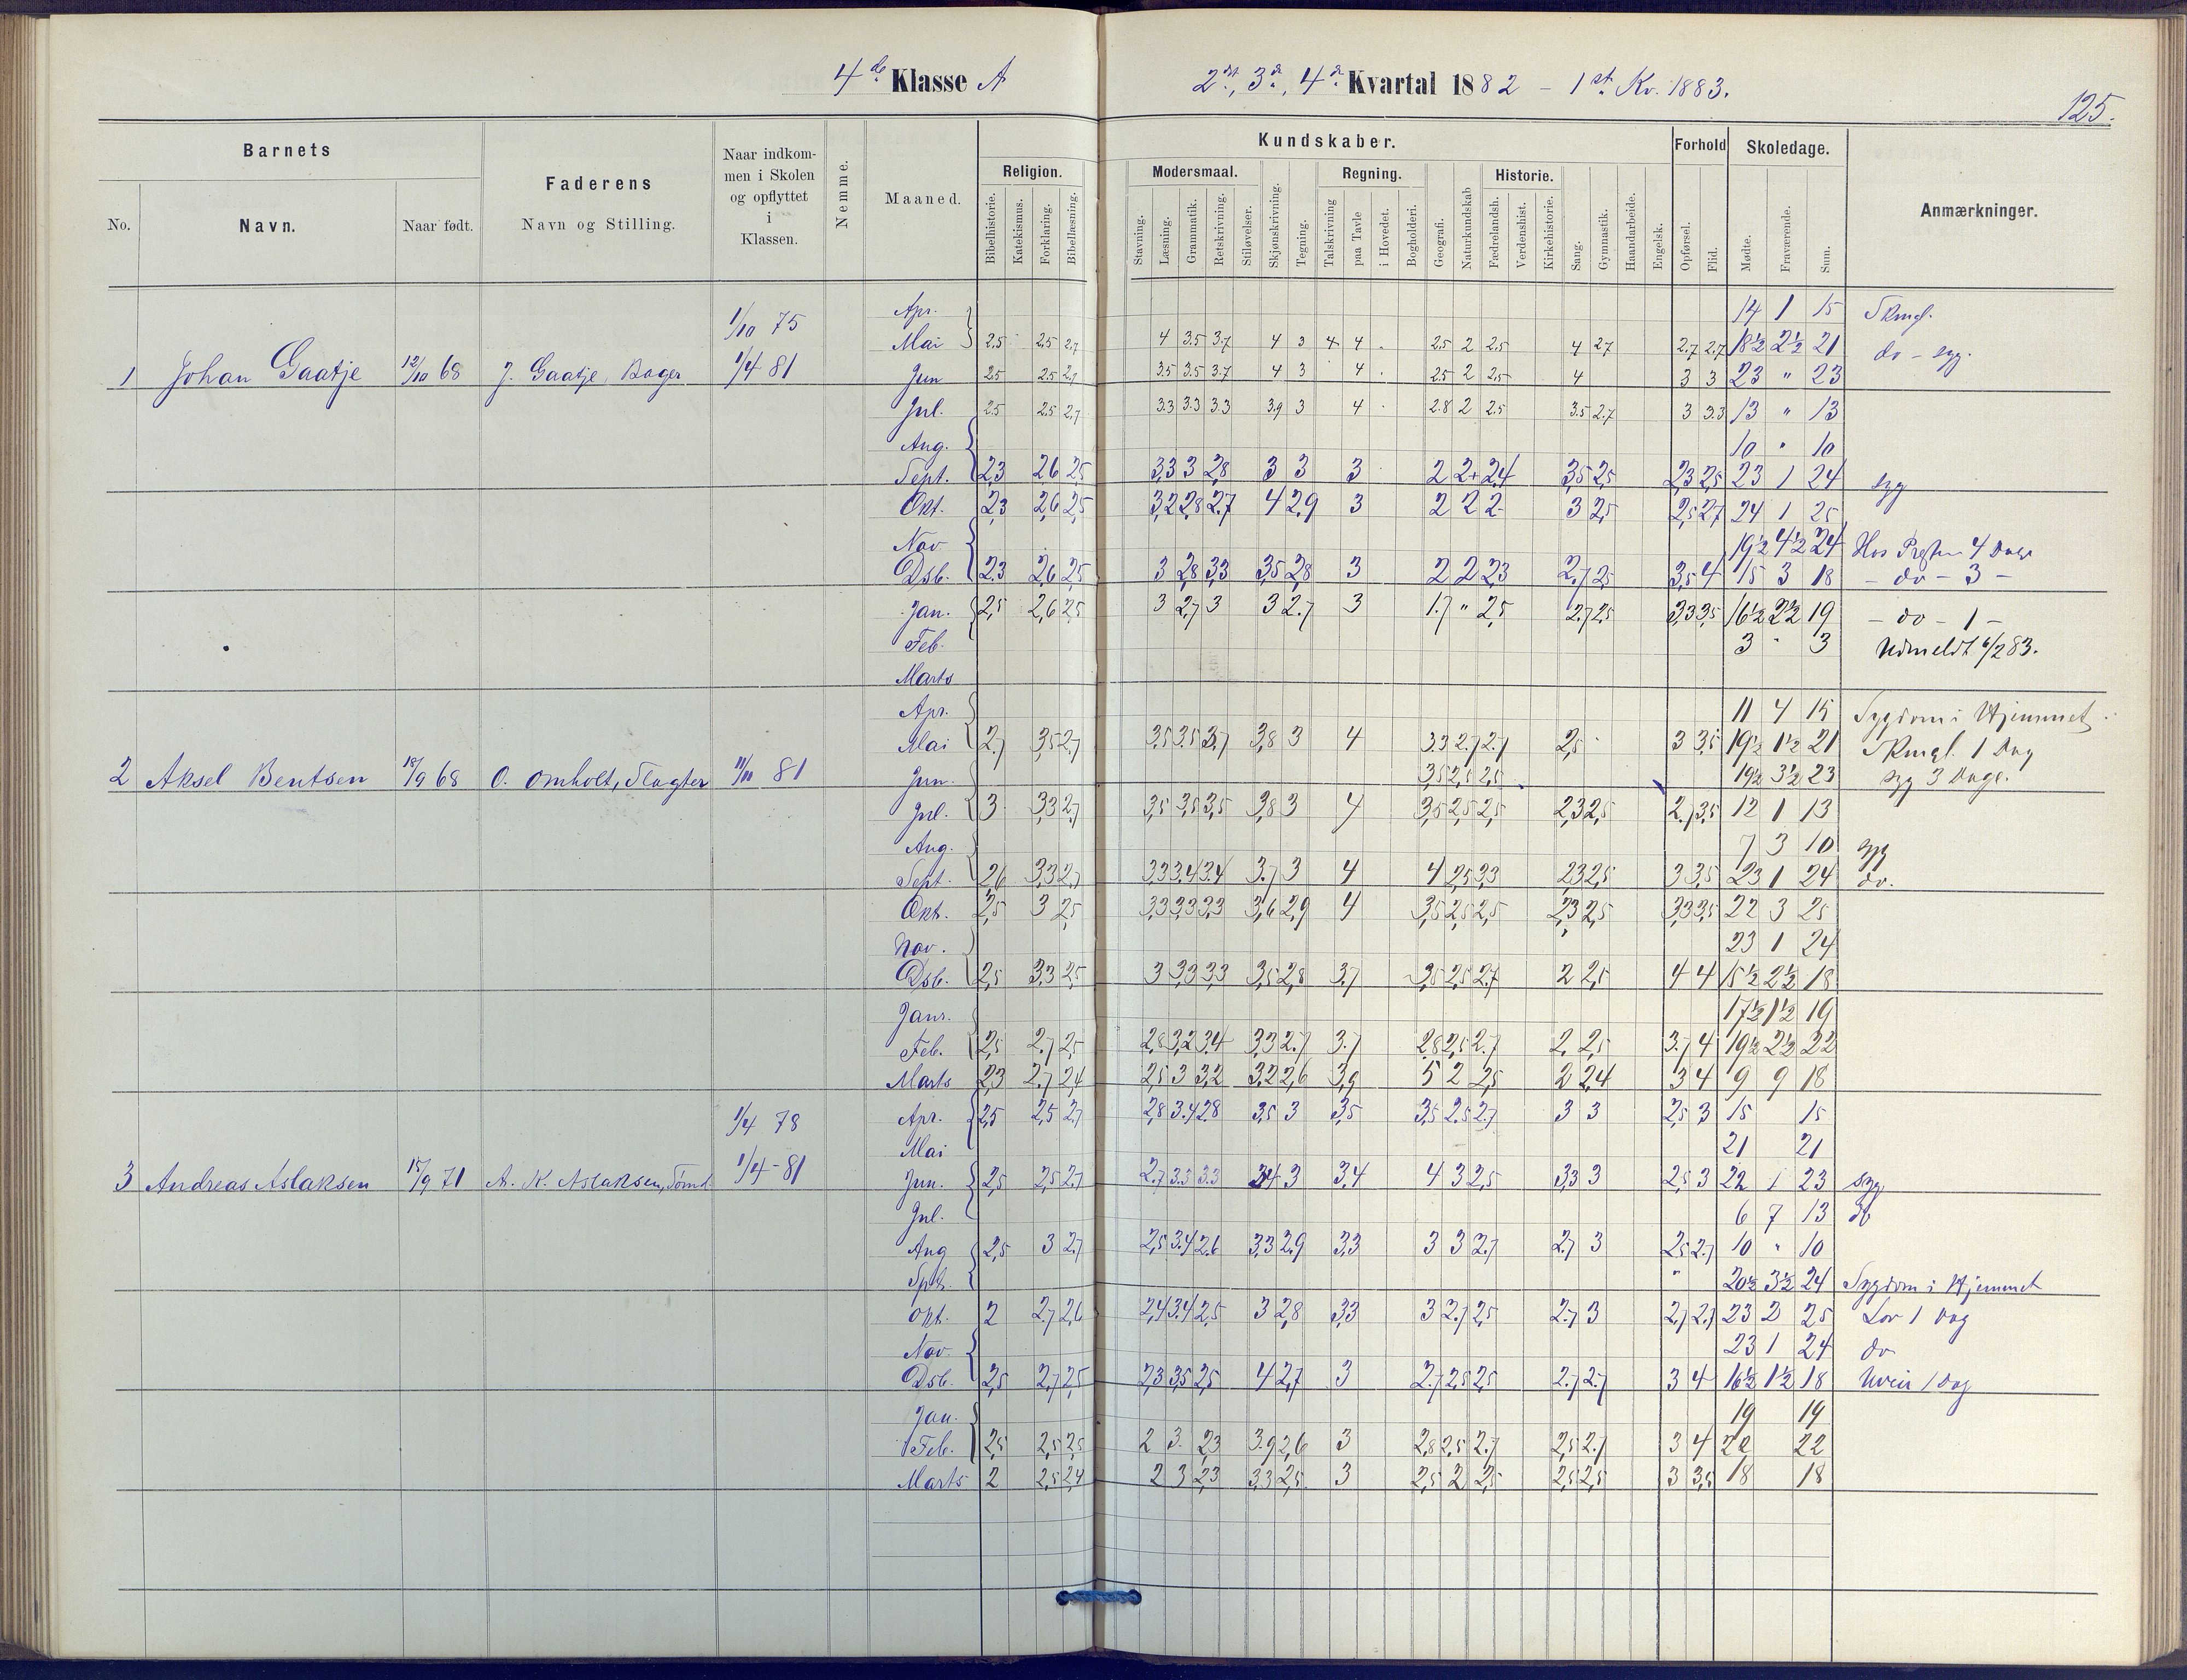 4de Klasse A
2det, 3de, 4de Kvartal 1882 – 1st. Kv. 1883.
125.
Barnets
No.
Navn.
Naar født.
Faderens
Navn og Stilling.
Naar indkom-
men i Skolen
og opflyttet
i
Klassen.
Nemme.
Maaned.
Kundskaber.
Religion.
Bibelhistorie.
Katekismus.
Forklaring.
Bibellæsning.
Modersmaal.
Stavning.
Læsning.
Grammatik.
Retskrivning.
Stiløvelser.
Skjønskrivning.
Tegning.
Regning.
Talskrivning
paa Tavle
i Hovedet.
Bogholderi.
Geografi.
Naturkundskab
Historie.
Fædrelandsh.
Verdenshist.
Kirkehistorie.
Sang.
Gymnastik.
Haandarbeide.
Engelsk.
Forhold
Opførsel.
Flid.
Skoledage.
Mødte.
Fraværende.
Sum.
Anmærkninger.
1/10 75
Apr. 14 1 15 Skmgl.
Mai 2.5 2.5 2.7 4 3.5 3.7 4 3 4 4 2.5 2 2.5 4 2.7 2.7 2.7 18½ 2½ 21 do – syg.
1 Johan Gaatje 12/10 68 J. Gaatje, Bager 1/4 81 Jun 2.5 2.5 2.7 3.5 3.5 3.7 4 3 4 2.5 2 2.5 4 3 3 23 " 23
Jul. 2.5 2.5 2.7 3.3 3.3 3.3 3.9 3 4 2.8 2 2.5 3.5 2.7 3 3.3 13 " 13
Aug. 10 " 10
Sept. 2,3 2,6 2,5 3,3 3 2,8 3 3 3 2 2+ 2,4 3,5 2,5 2,3 2,5 23 1 24 syg
Okt. 2,3 2,6 2,5 3,2 2,8 2,7 4 2,9 3 2 2 2- 3 2,5 2,5 2,7 24 1 25
Nov 19½ 4½ 24 Hos Præsten 4 Dage
Dsb. 2,3 2,6 2,5 3 2,8 3,3 3,5 2,8 3 2 2 2,3 2,7 2,5 3,5 4 15 3 18 – do – 3 –
Jan. 2,5 2,6 2,5 3 2,7 3 3 2.7 3 1.7 " 2,5 2.7 2,5 3,3 3,5 16½ 2½ 19 – do – 1 –
Feb. 3 " 3 Udmeldt 6/2 83.
Marts
Apr. 11 4 15 Sygdom i Hjemmet
Mai 2.7 3,5 2.7 3,5 3.5 3.7 3,8 3 4 3.3 2.7 2.7 2,5 3 3,5 19½ 1½ 21 Skmgl. 1 Dag
2 Aksel Bentsen 18/9 68 O. Omholt, Slagter 11/11 81 Jun. 3,5 2,5 2,5 19½ 3½ 23 syg 3 Dage.
Jul. 3 3,3 2,7 3,5 3,5 3,5 3,8 3 4 3,5 2,5 2,5 2,3 2,5 2.7 3,5 12 1 13
Aug. 7 3 10 syg
Sept. 2,6 3,3 2,7 3,3 3,4 3,4 3.7 3 4 4 2,5 3,3 2,3 2,5 3 3,5 23 1 24 do.
Okt. 2,5 3 2,5 3,3 3,3 3,3 3,6 2,9 4 3,5 2,5 2,5 2,3 2,5 3,3 3,5 22 3 25
Nov. 23 1 24
Dsb. 2,5 3,3 2,5 3 3,3 3,3 3,5 2,8 3,7 3,5 2,5 2.7 2 2,5 4 4 15½ 2½ 18
Janr. 17½ 1½ 19
Feb. 2,5 2.7 2,5 2,8 3,2 3,4 3,3 2.7 3.7 2,8 2,5 2.7 2. 2,5 3.7 4 19½ 2½ 22
Marts 2,3 2.7 2,4 2,5 3 3,2 3,2 2,6 3,9 5 2 2,5 2 2,4 3 4 9 9 18
1/4 78
Apr. 2,5 2,5 2.7 2,8 3.4 2.8 3,5 3 3,5 3,5 2.5 2.7 3 3 2,5 3 15 15
Mai 21 21
3 Andreas Aslaksen 15/9 71 A. K. Aslaksen, Tømd 1/4 – 81 Jun. 2,5 2,5 2.7 2.7 3.3 3.3 3,4 3 3,4 4 3 2,5 3,3 3 2,5 3 22 1 23 syg
Jul. 6 7 13 do
Aug 2,5 3 2.7 2,5 3.4 2.6 3,3 2.9 3,3 3 3 2.7 2.7 3 2,5 2.7 10 " 10
Spt. 20½ 3½ 24 Sygdom i Hjemmet
Okt. 2 2.7 2,6 2,4 3.4 2.5 3 2,8 3,3 3 2.7 2,5 2.7 3 2,7 2.7 23 2 25 Lov 1 Dag
Nov. 23 1 24 do
Dsb. 2,5 2,7 2,5 2,3 3,5 2,5 4 2,7 3 2.7 2,5 2,5 2.7 2.7 3 4 16½ 1½ 18 Uveir 1 Dag
Jan. 19 19
Feb. 2,5 2,5 2,5 2 3. 2,3 3.9 2,6 3 2,8 2,5 2.7 2,5 2.7 3 4 22 22
Marts 2 2,5 2,4 2 3 2,3 3,3 2,5 3 2,5 2 2,5 2,5 2,5 3 3,5 18 18